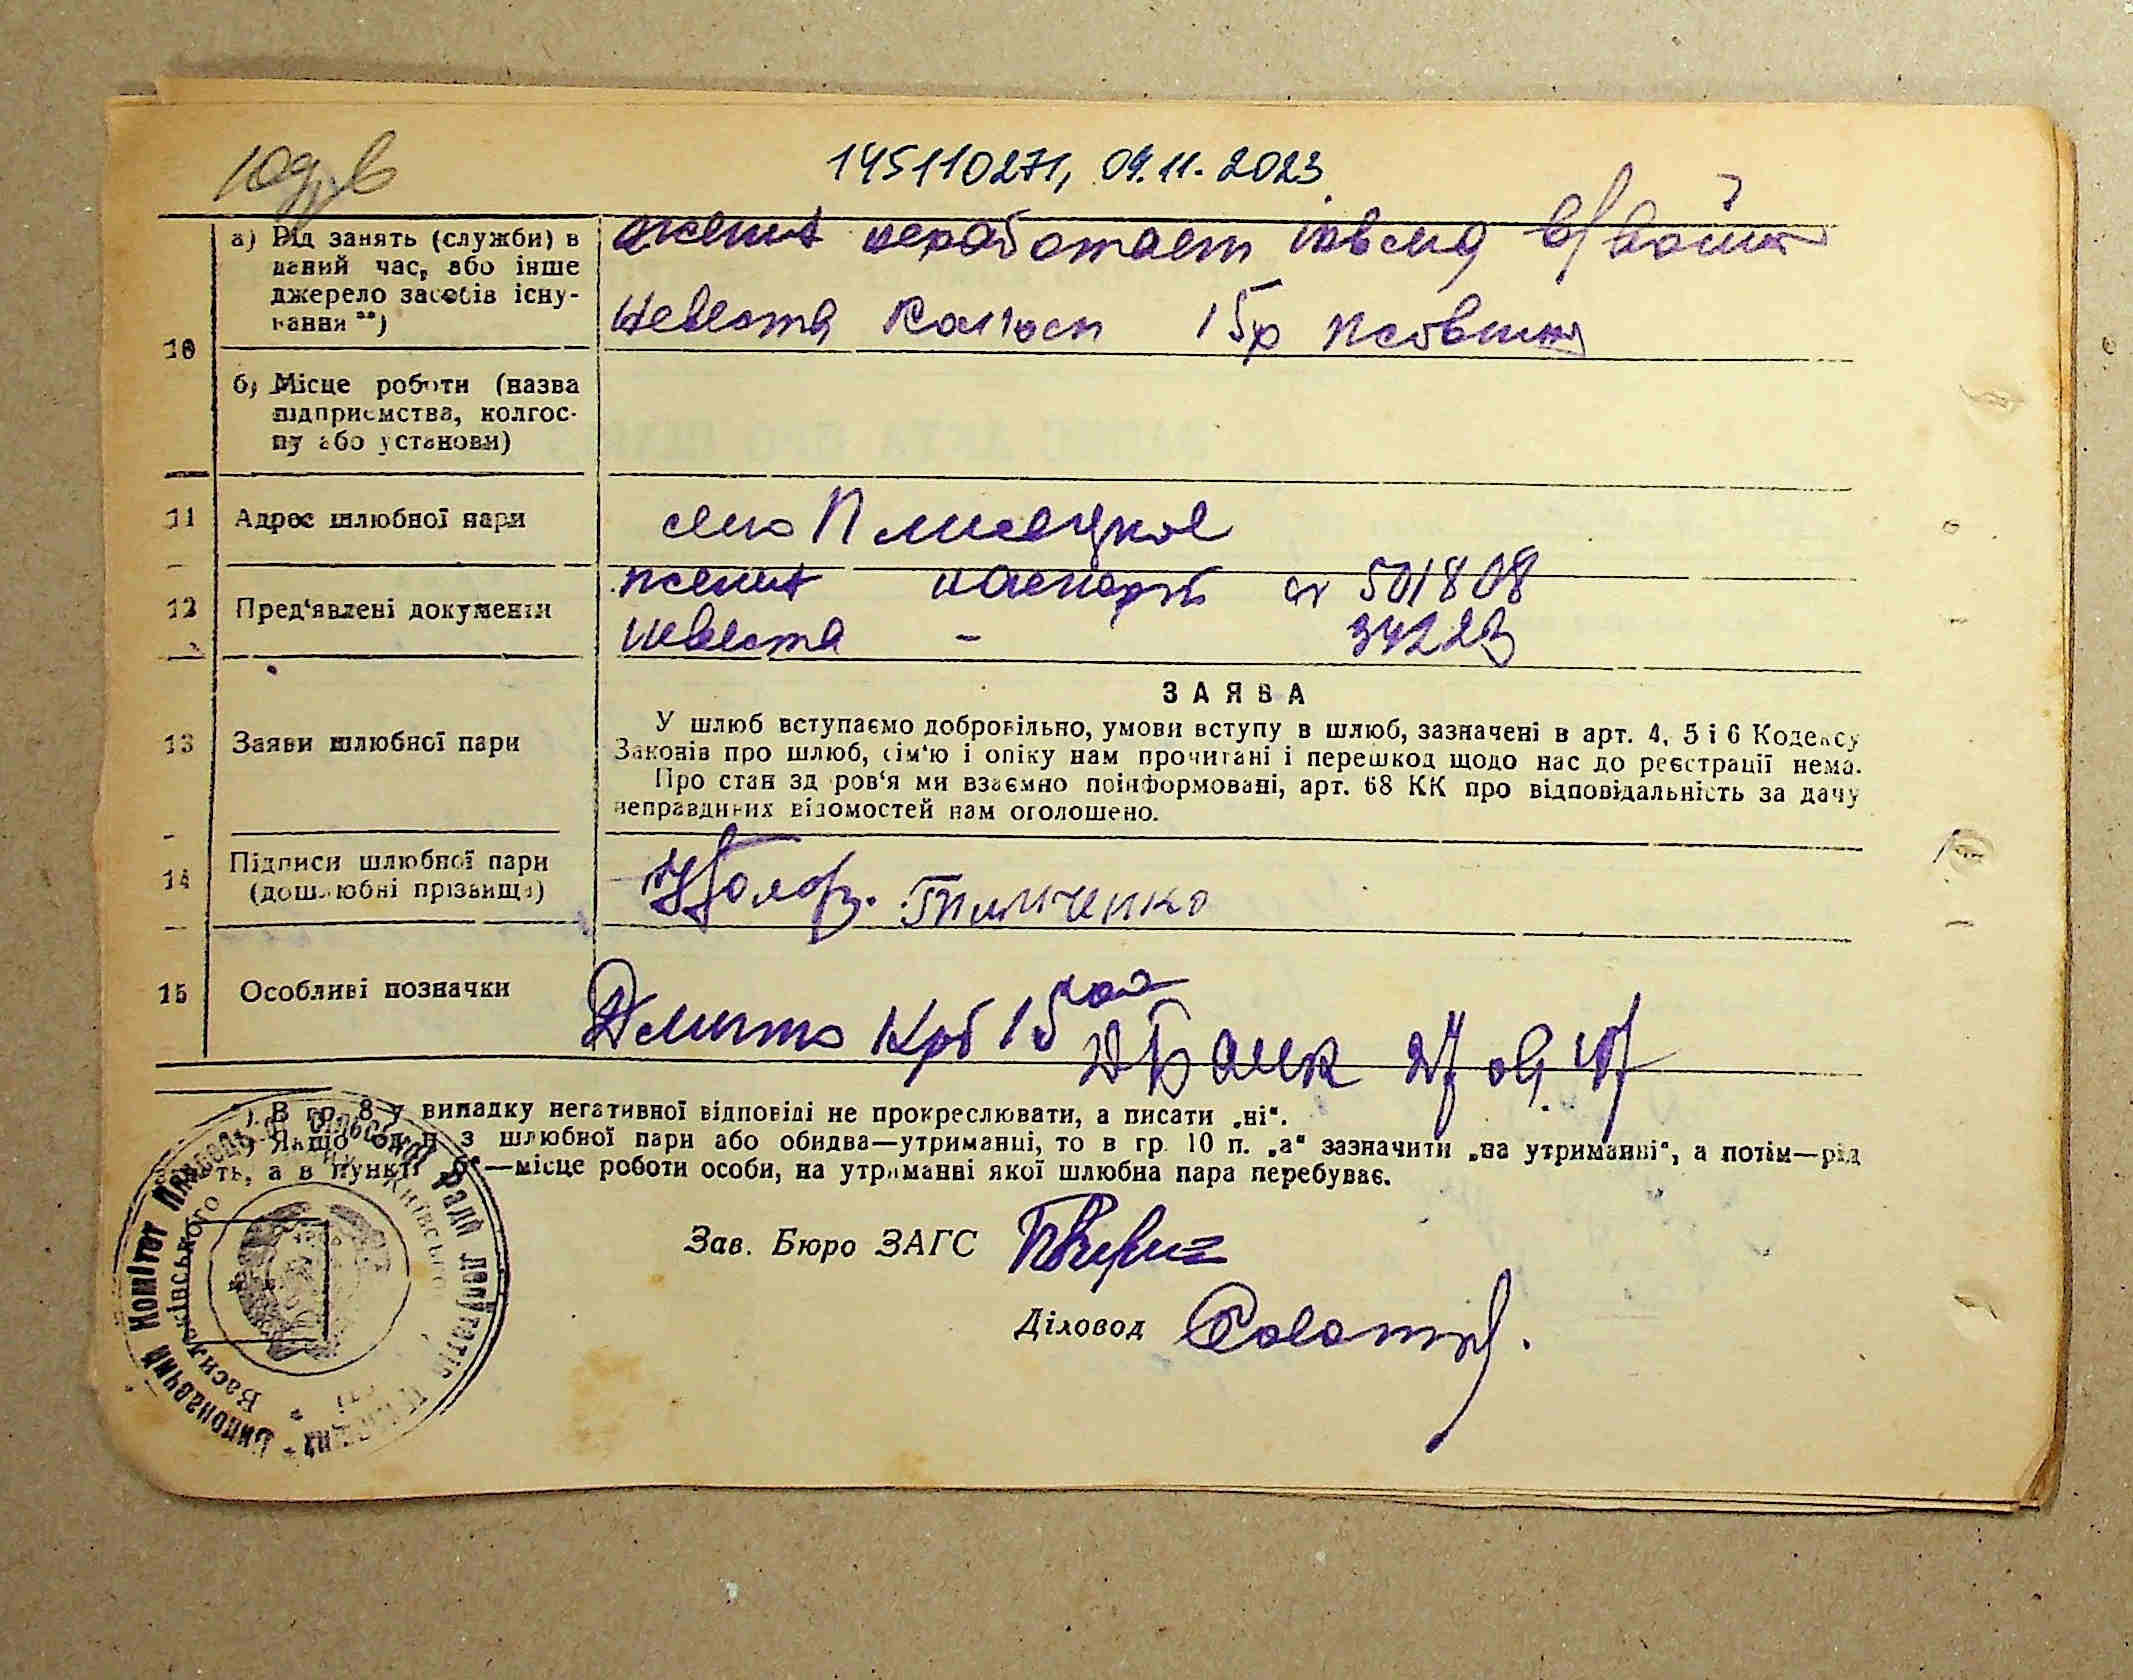 145110271, 09.11.2023
10
а) Рід занять (служби) в
даний час, або інше
джерело засобів існу-
вання **)
жених неработает
невеста 15р
б) Місце роботи (назва
підприємства, колгос-
пу або установи)
11 Адрес шлюбної пари
село Плисецкое
12 Пред'явлені документи
жених паспорт 501808
невеста - 34223
13 Заяви шлюбної пари
ЗАЯВА
У шлюб вступаємо добровільно, умови вступу в шлюб, зазначені в арт. 4, 5 і 6 Кодексу
Законів про шлюб, сім'ю і опіку нам прочитані і перешкод щодо нас до реєстрації нема.
Про стан здоров'я ми взаємно поінформовані, арт. 68 КК про відповідальність за дачу
неправдивих відомостей нам оголошено.
14 Підписи шлюбної пари
(дошлюбні прізвища)
Тимченко
15 Особливі позначки
15
Банк 27 09. 47
*) В гр. 8 у випадку негативної відповіді не прокреслювати, а писати „ні“.
**) Якщо один з шлюбної пари або обидва—утриманці, то в гр. 10 п. „а“ зазначити „на утриманні“, а потім—рід
занять, а в пункті „б“—місце роботи особи, на утриманні якої шлюбна пара перебуває.
Зав. Бюро ЗАГС
Діловод
Виконавчий Комітет
Ради депутатів трудящих
Васильківського
Київської